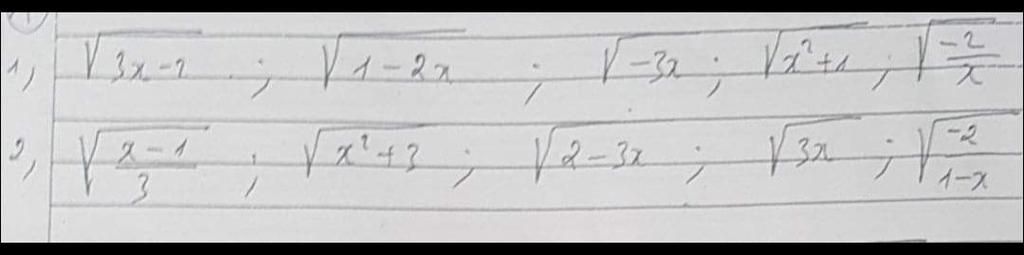 1, √(3x-2) ; √(1-2x) ; √(-3x) ; √(x²+1) ; √(-2/x)
2, √((x-1)/3) ; √(x²+3) ; √(2-3x) ; √(3x) ; √(-2/(1-x))